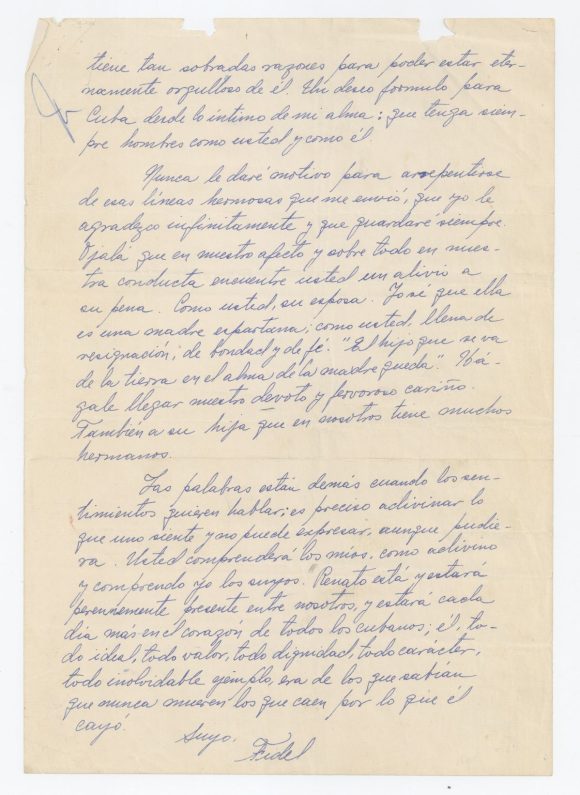 tiene tan sobradas razones para poder estar eter-
namente orgulloso de él. Un deseo formulo para
Cuba desde lo íntimo de mi alma: que tenga siem-
pre hombres como usted y como él.
Nunca le daré motivo para arrepentirse
de esas líneas hermosas que me envió, que yo le
agradezco infinitamente y que guardaré siempre.
Ojalá que en nuestro afecto y sobre todo en nues-
tra conducta encuentre usted un alivio a
su pena. Como usted, su esposa. Yo sé que ella
es una madre espartana; como usted, llena de
resignación, de bondad y de fé. "El hijo que se va
de la tierra en el alma de la madre queda". Há-
gale llegar nuestro devoto y fervoroso cariño.
También a su hija que en nosotros tiene muchos
hermanos.
Las palabras están demás cuando los sen-
timientos quieren hablar; es preciso adivinar lo
que uno siente y no puede expresar, aunque pudie-
ra. Usted comprenderá los mios, como adivino
y comprendo yo los suyos. Renato está y estará
perennemente presente entre nosotros, y estará cada
día más en el corazón de todos los cubanos; él, to-
do ideal, todo valor, todo dignidad, todo carácter,
todo inolvidable ejemplo, era de los que sabían
que nunca mueren los que caen por lo que él
cayó.
Suyo.
Fidel